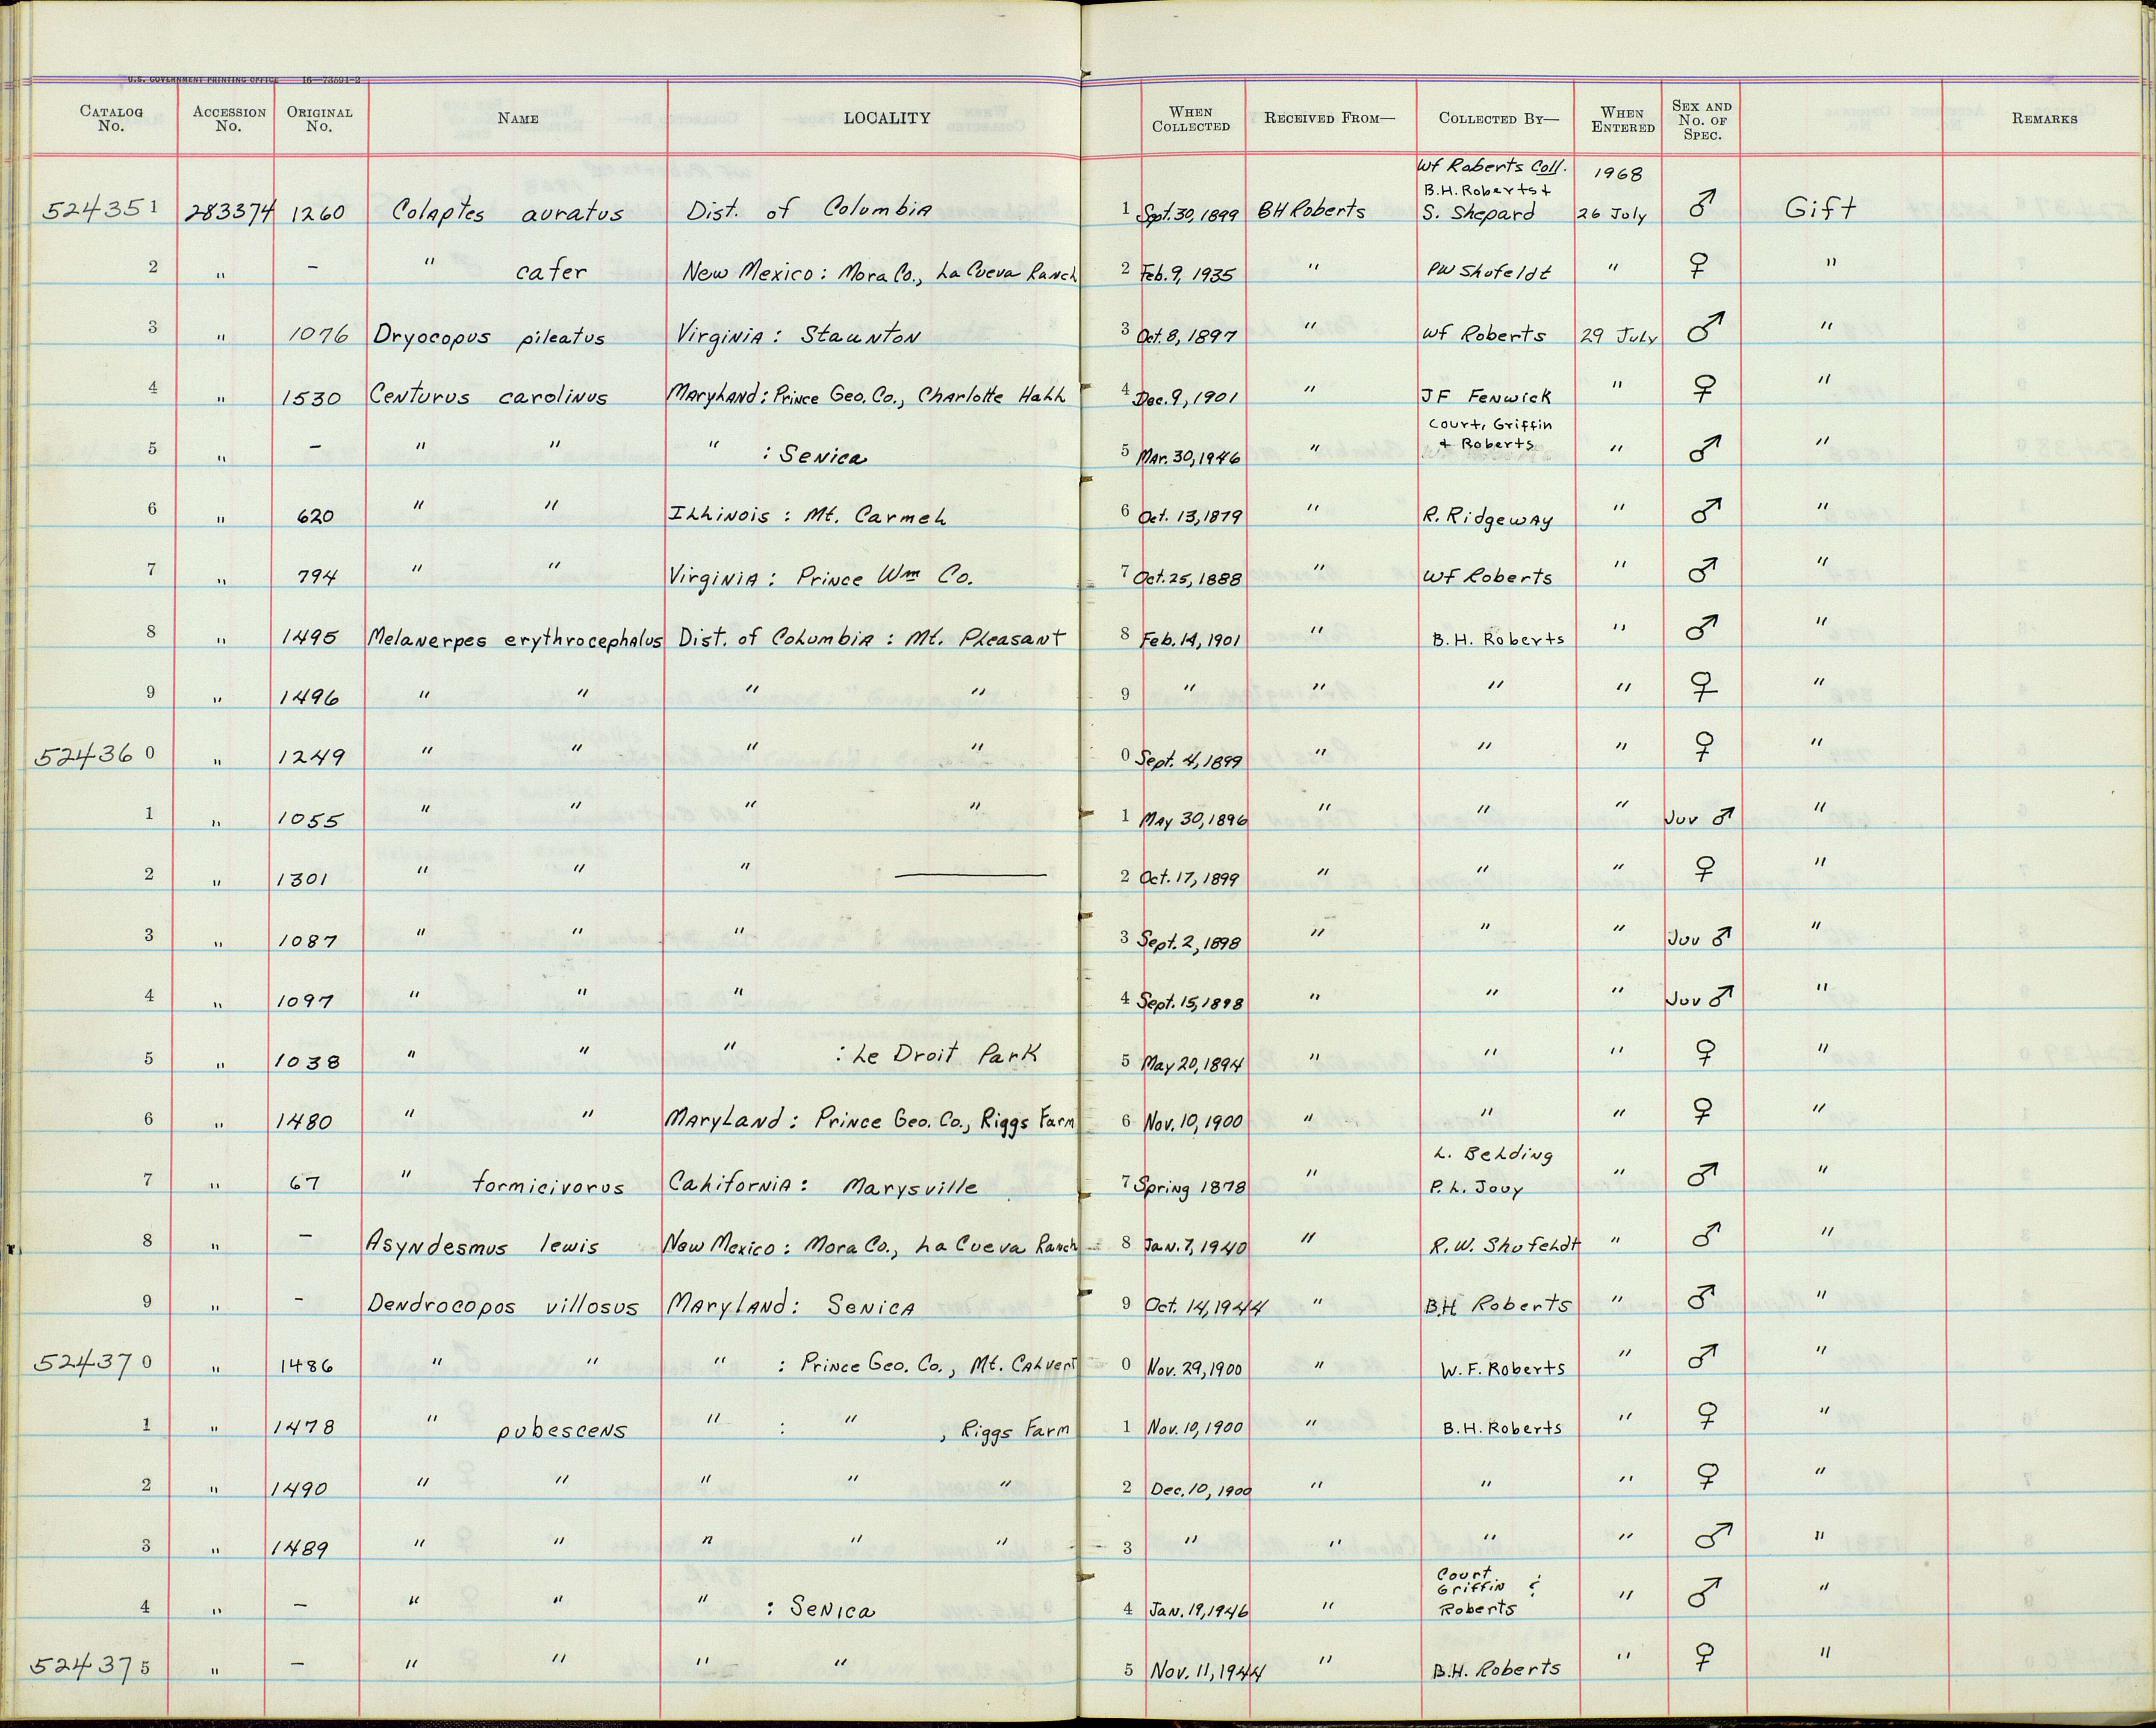 U.S. GOVERNMENT PRINTING OFFICE 16—73591-2
CATALOG No. ACCESSION No. ORIGINAL No. NAME LOCALITY WHEN COLLECTED RECEIVED FROM— COLLECTED BY— WHEN ENTERED SEX AND No. OF SPEC. REMARKS
Wf Roberts Coll. 1968
B.H. Roberts +
524351 283374 1260 Colaptes auratus Dist. of Columbia 1 Sept. 30, 1899 BH Roberts S. Shepard 26 July ♂ Gift
2 " – " cafer New Mexico: Mora Co., La Cueva Ranch 2 Feb. 9, 1935 " PW Shufeldt " ♀ "
3 " 1076 Dryocopus pileatus Virginia: Staunton 3 Oct. 8, 1897 " Wf Roberts 29 July ♂ "
4 " 1530 Centurus carolinus Maryland: Prince Geo. Co., Charlotte Hall 4 Dec. 9, 1901 " JF Fenwick " ♀ "
Court, Griffin
5 " – " " " : Senica 5 Mar. 30, 1946 " + Roberts " ♂ "
6 " 620 " " Illinois: Mt. Carmel 6 Oct. 13, 1879 " R. Ridgeway " ♂ "
7 " 794 " " Virginia: Prince Wm Co. 7 Oct. 25, 1888 " Wf Roberts " ♂ "
8 " 1495 Melanerpes erythrocephalus Dist. of Columbia: Mt. Pleasant 8 Feb. 14, 1901 " B.H. Roberts " ♂ "
9 " 1496 " " " " 9 " " " " ♀ "
524360 " 1249 " " " " 0 Sept. 4, 1899 " " " ♀ "
1 " 1055 " " " " 1 May 30, 1896 " " " Juv ♂ "
2 " 1301 " " " — 2 Oct. 17, 1899 " " " ♀ "
3 " 1087 " " " 3 Sept. 2, 1898 " " " Juv ♂ "
4 " 1097 " " " 4 Sept. 15, 1898 " " " Juv ♂ "
5 " 1038 " " " : Le Droit Park 5 May 20, 1894 " " " ♀ "
6 " 1480 " " Maryland: Prince Geo. Co., Riggs Farm 6 Nov. 10, 1900 " " " ♀ "
L. Belding
7 " 67 " formicivorus California: Marysville 7 Spring 1878 " P.L. Jouy " ♂ "
8 " – Asyndesmus lewis New Mexico: Mora Co., La Cueva Ranch 8 Jan. 7, 1940 " R.W. Shufeldt " ♂ "
9 " – Dendrocopos villosus Maryland: Senica 9 Oct. 14, 1944 " B.H Roberts " ♂ "
524370 " 1486 " " " : Prince Geo. Co., Mt. Calvert 0 Nov. 29, 1900 " W.F. Roberts " ♂ "
1 " 1478 " pubescens " : " , Riggs Farm 1 Nov. 10, 1900 " B.H. Roberts " ♀ "
2 " 1490 " " " " " 2 Dec. 10, 1900 " " " ♀ "
3 " 1489 " " " " " 3 " " " " ♂ "
Court
Griffin &
4 " – " " " : Senica 4 Jan. 19, 1946 " Roberts " ♂ "
524375 " – " " " " 5 Nov. 11, 1944 " B.H. Roberts " ♀ "